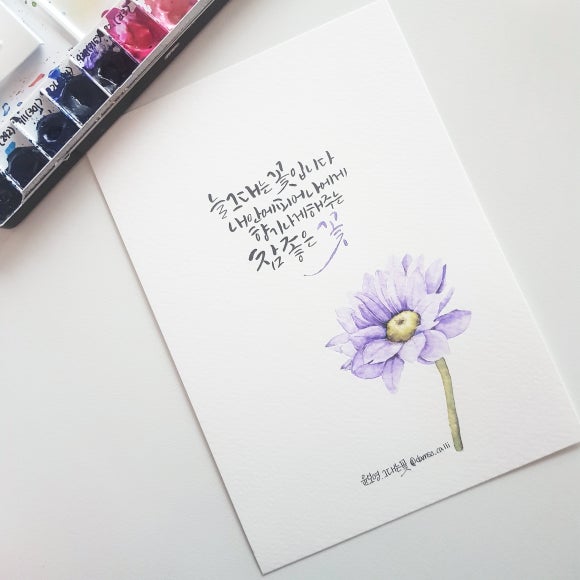 늘 그대는 꽃입니다
내 안에 피어 나에게
향기나게 해주는
참 좋은 꽃
윤보영_그대는 꽃 @damso_calli